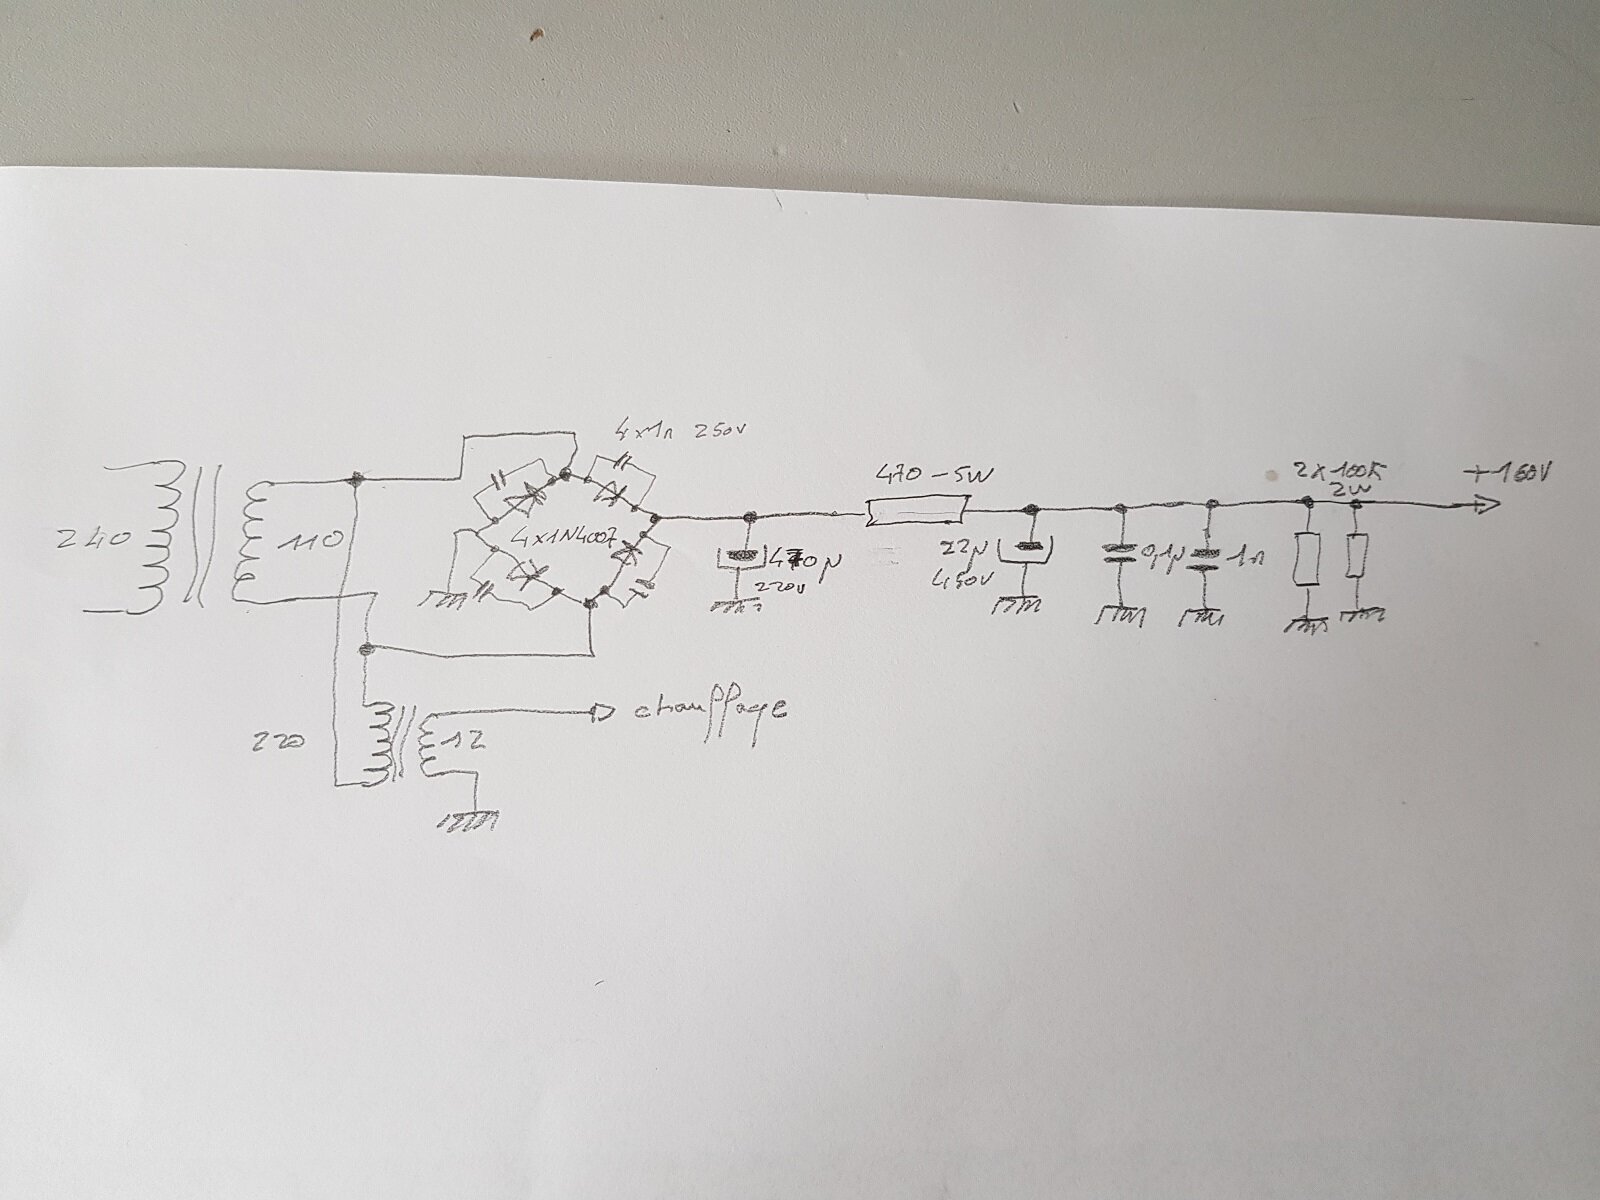 4x1n 250v
240
110
4x1N4007
470µ
220v
470-5W
22µ
450V
0,1µ
1n
2x100K
2W
+160V
220
12
chauffage